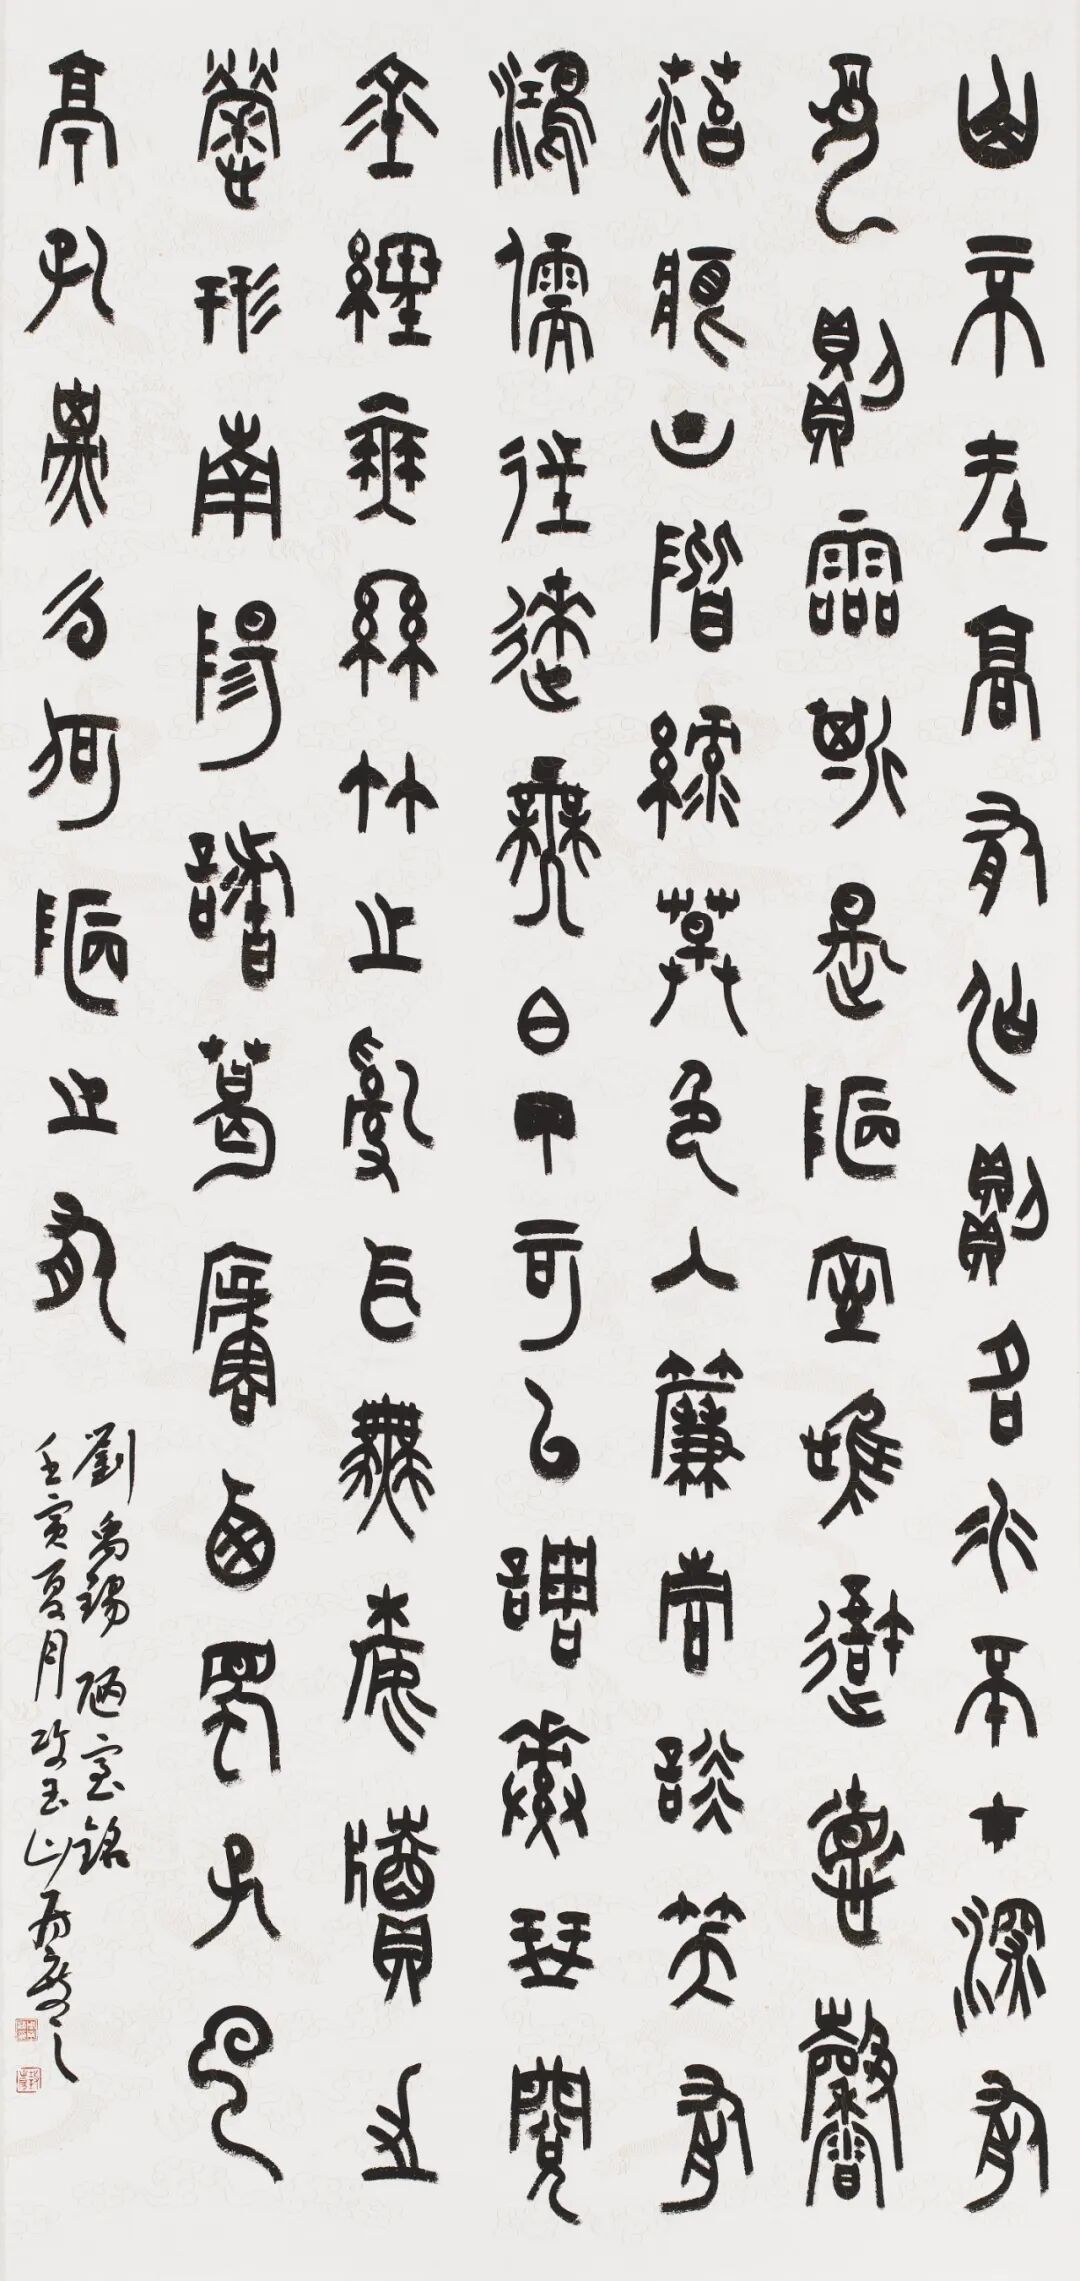 山不在高有仙則名水不在深有
龍則靈斯是陋室唯吾德馨
苔痕上階綠草色入簾青談笑有
鴻儒往來無白丁可以調素琴閱
金經無絲竹之亂耳無案牘之
勞形南陽諸葛廬西蜀子雲
亭孔子云何陋之有
劉禹錫陋室銘
壬寅夏月攻玉山房